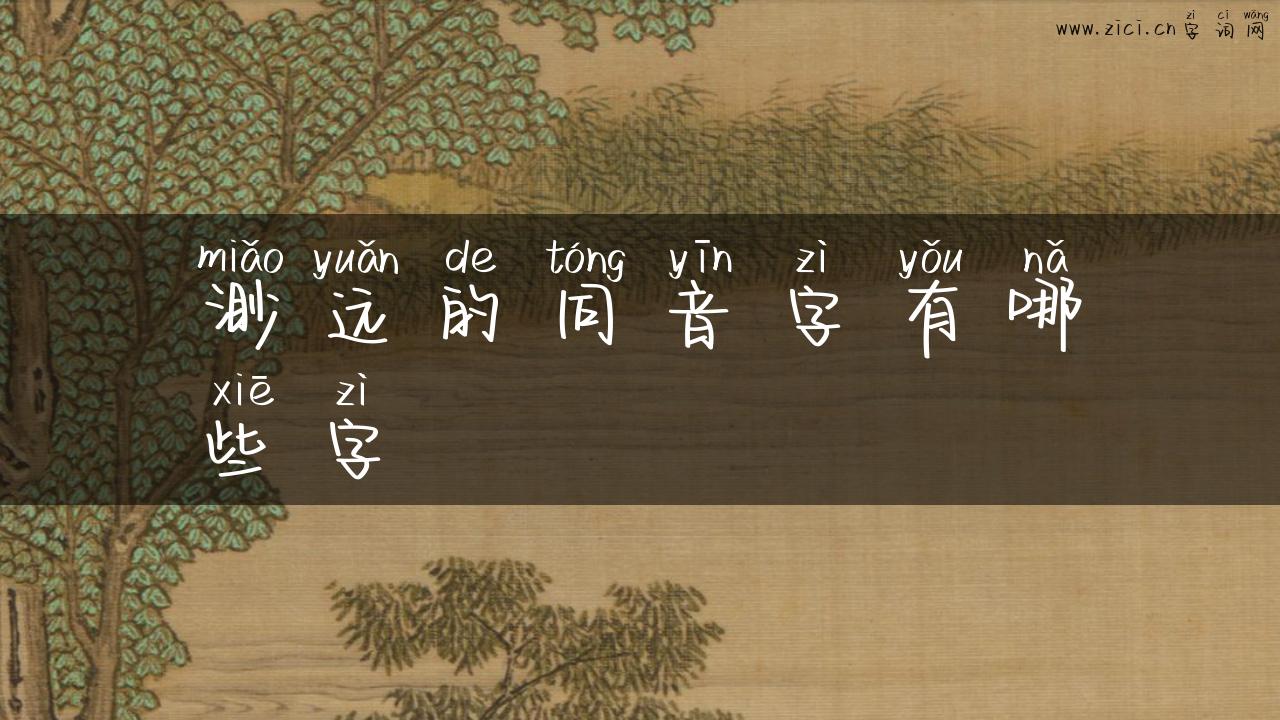 zì cí wǎng
www.zici.cn字词网
miǎo yuǎn de tóng yīn zì yǒu nǎ
渺远的同音字有哪
xiē zì
些字